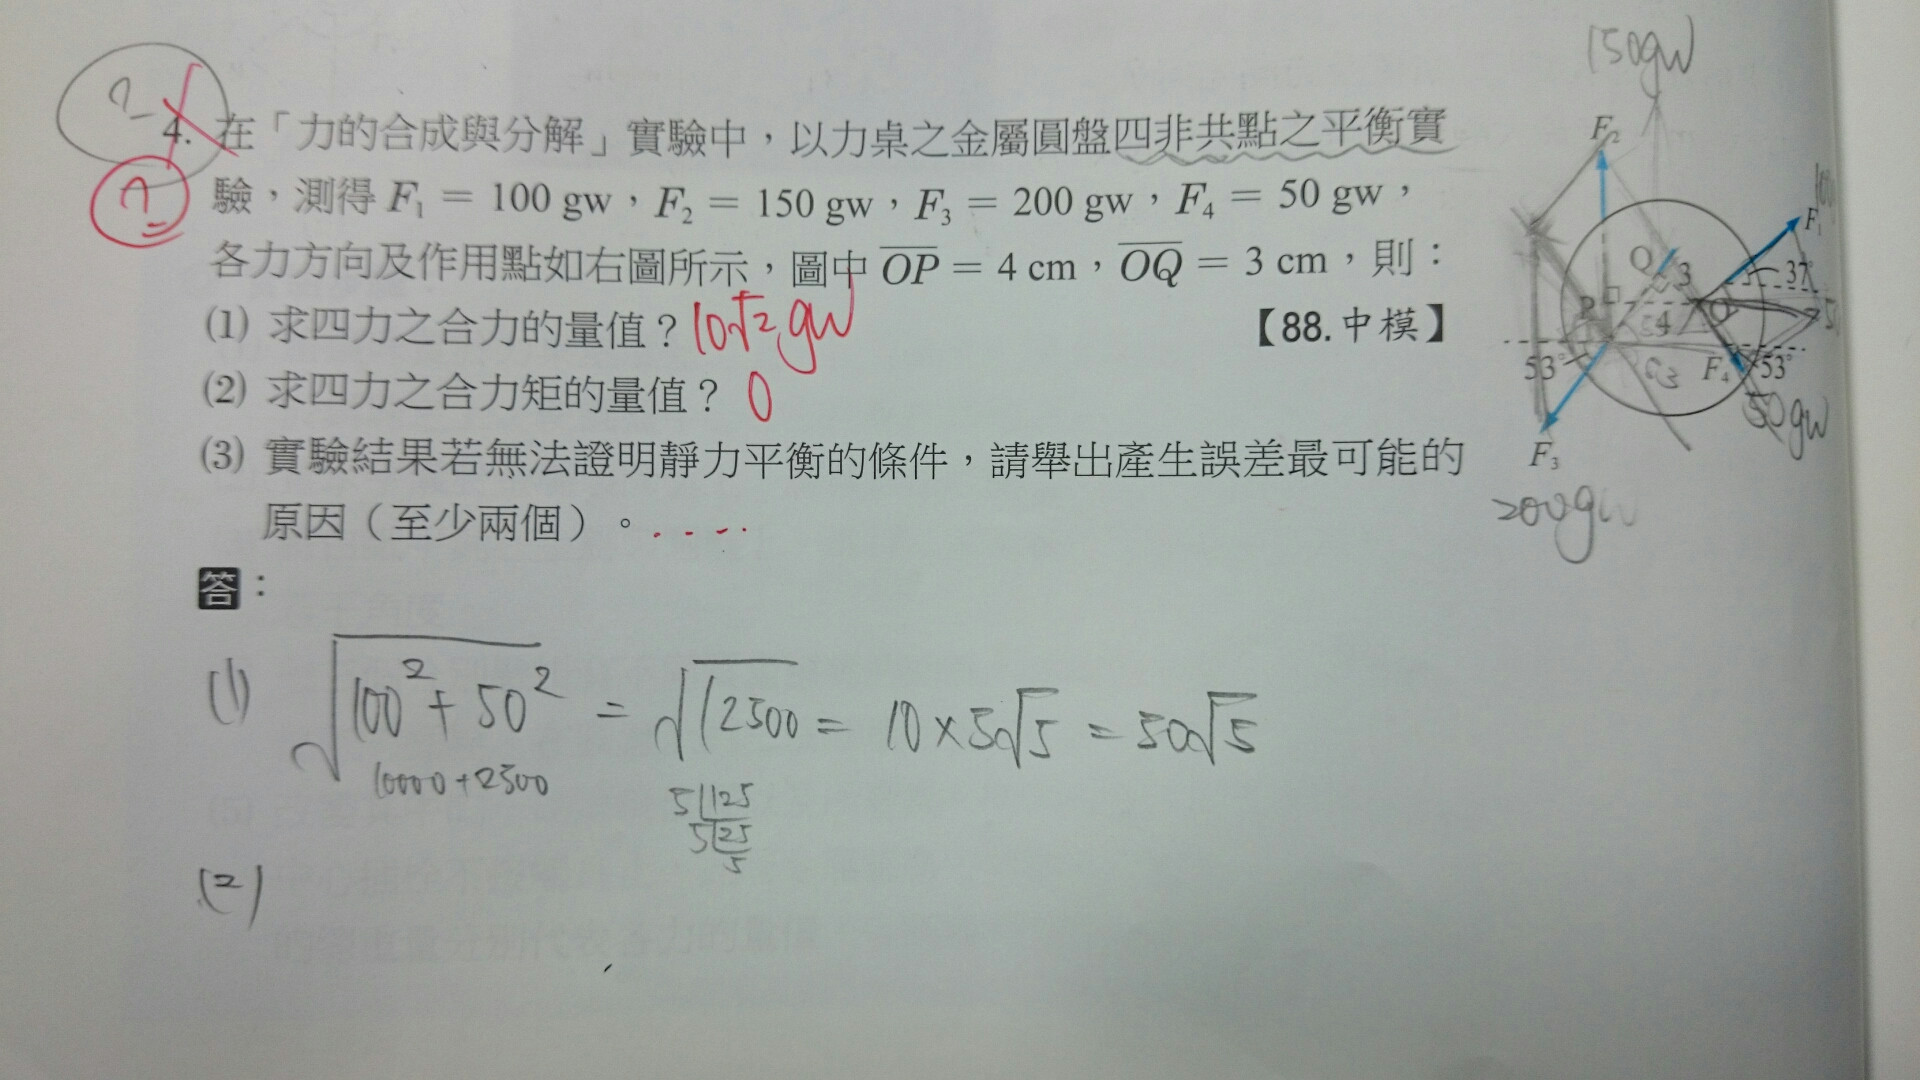 4. 在「力的合成與分解」實驗中，以力桌之金屬圓盤四非共點之平衡實
驗，測得 F₁ = 100 gw，F₂ = 150 gw，F₃ = 200 gw，F₄ = 50 gw，
各力方向及作用點如右圖所示，圖中 OP = 4 cm，OQ = 3 cm，則：
(1) 求四力之合力的量值？10√2 gw
【88. 中模】
(2) 求四力之合力矩的量值？0
(3) 實驗結果若無法證明靜力平衡的條件，請舉出產生誤差最可能的
原因（至少兩個）。....
150gw
F₂
F₁
Q
3
37°
P
O
4
53°
F₄
53°
50gw
F₃
200gw
答：
(1) √100²+50² = √12500 = 10×5√5 = 50√5
10000+2500
5 125
5 25
5
(2)